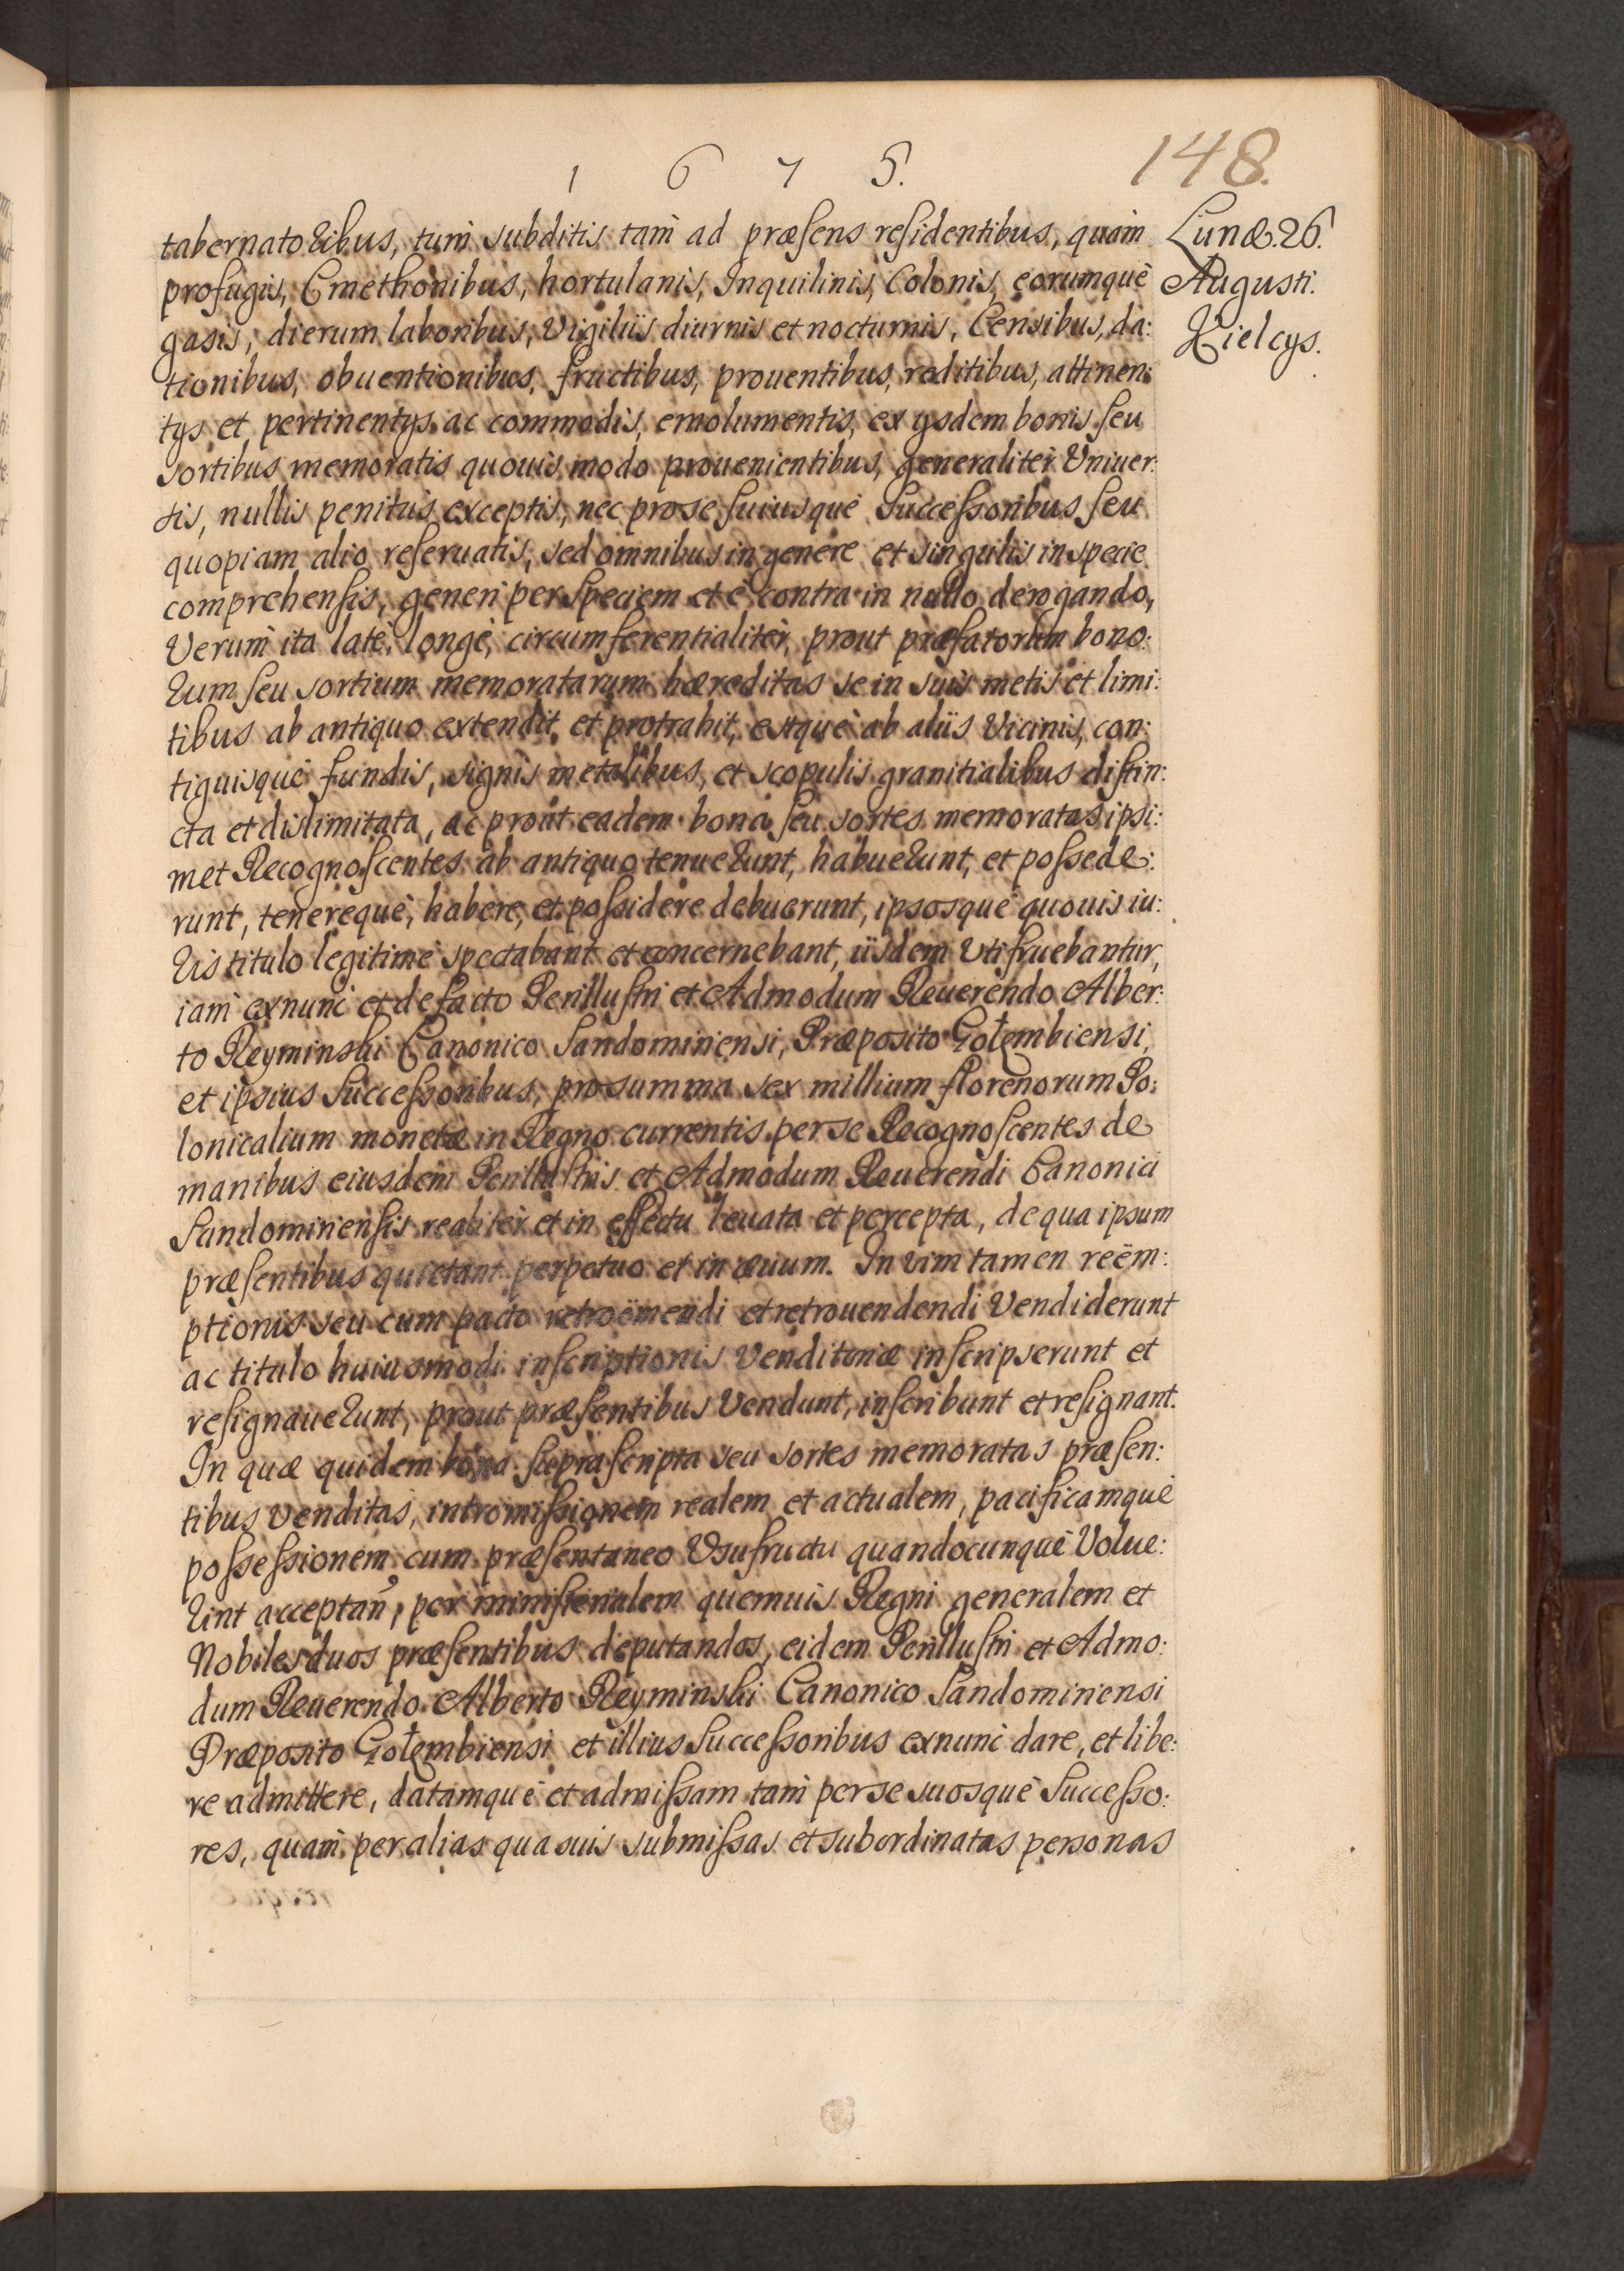 1 6 7 5.
148.
Lunæ. 26.
Augusti.
Kielcys.
tabernatoribus, tum subditis tam ad præsens residentibus, quam
profugis, Cmethonibus, hortulanis, Inquilinis, Colonis, eorumque
gasis, dierum laboribus, Vigiliis diurnis et nocturnis, Censibus, da:
tionibus, obuentionibus, fructibus, prouentibus, reditibus, attinen:
tys et pertinentys ac commodis, emolumentis, ex ysdem bonis seu
sortibus memoratis quouis modo prouenientibus, generaliter Vniuer:
sis, nullis penitus exceptis, nec pro se suiusque Successoribus seu
quopiam alio reseruatis, sed omnibus in genere et singulis in specie
comprehensis, generi per speciem et è contra in nullo derogando,
Verum ita late, longe, circumferentialiter, prout præfatorum bono:
rum seu sortium memoratarum hæreditas se in suis metis et limi:
tibus ab antiquo extendit, et protrahit, estque ab aliis Vicinis, con:
tiguisque fundis, signis metalibus, et scopulis granitialibus distin:
cta et dislimitata, ac prout eadem bona seu sortes memoratas ipsi:
met Recognoscentes ab antiquo tenuerunt, habuerunt, et possede:
runt, tenereque, habere, et possidere debuerunt, ipsosque quouis iu:
ris titulo legitime spectabant et concernebant, iisdem Vtifruebantur,
iam exnunc et de facto Perillustri et Admodum Reuerendo Alber:
to Reyminski Canonico Sandomiriensi, Præposito Gołembiensi,
et ipsius Successoribus, pro summa sex millium florenorum Po:
lonicalium monetæ in Regno currentis per se Recognoscentes de
manibus eiusdem Perillustris et Admodum Reuerendi Canonici
Sandomiriensis realiter et in effectu leuata et percepta, de qua ipsum
præsentibus quietant perpetuo et in æuum. In vim tamen reëm:
ptionis seu cum pacto retroëmendi et retrouendendi Vendiderunt
ac titulo huiusmodi inscriptionis Venditoriæ inscripserunt et
resignauerunt, prout præsentibus Vendunt, inscribunt et resignant.
In quæ quidem bona suprascripta seu sortes memoratas præsen:
tibus venditas, intromissionem realem et actualem, pacificamque
possessionem cum præsentaneo Vsufructu quandocunque Volue:
rint acceptan, per ministerialem quemuis Regni generalem et
Nobiles duos præsentibus deputandos, eidem Perillustri et Admo:
dum Reuerendo Alberto Reyminski Canonico Sandomiriensi
Præposito Gołembiensi et illius Successoribus exnunc dare, et libe:
re admittere, datamque et admissam tam per se suosque Successo:
res, quam per alias quasuis submissas et subordinatas personas